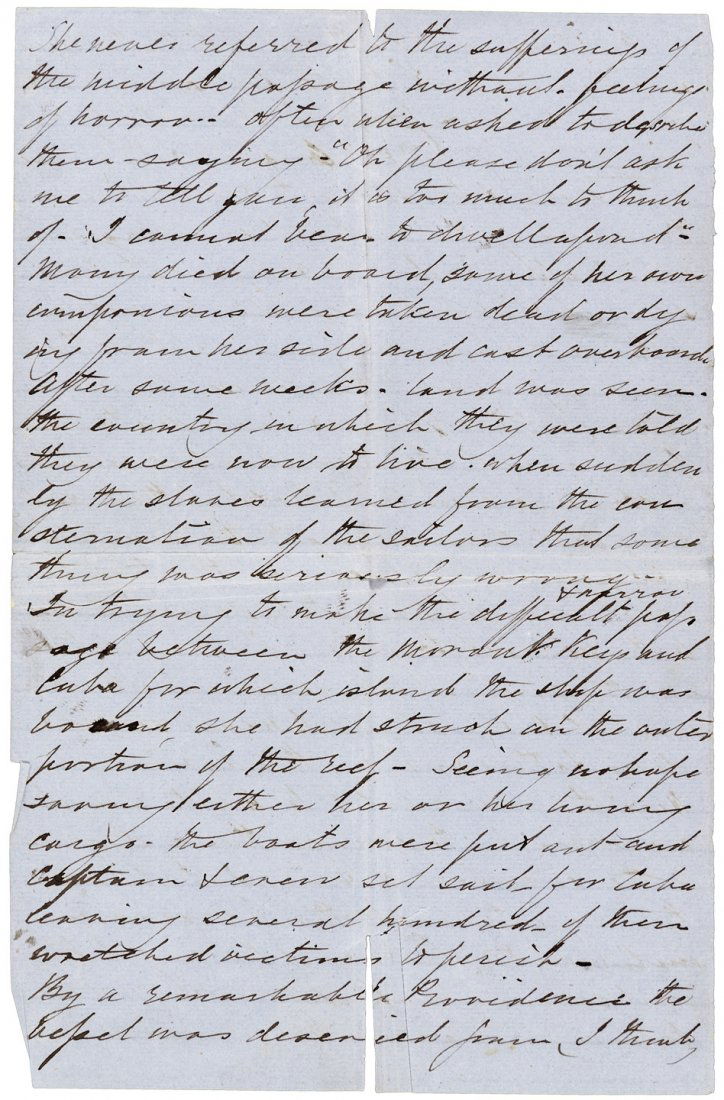 She never referred to the sufferings of
the middle passage without feelings
of horror - often when asked to describe
them - saying - "Oh please don't ask
me to tell you, it is too much to think
of - I cannot bear to dwell upon it" -
Many died on board, some of her own
companions were taken dead or dy
ing from her side and cast overboard
After some weeks - land was seen -
the country in which they were told
they were now to live - when sudden
ly the slaves learned from the con
sternation of the sailors that some
thing was seriously wrong -
& narrow
In trying to make the difficult pas
sage between the Morant Keys and
Cuba for which island the ship was
bound, she had struck on the outer
portion of the reef - Seeing no hope
saving either her or her living
cargo - the boats were put out and
Captain & crew set sail for Cuba
leaving several hundred of their
wretched victims to perish -
By a remarkable Providence the
vessel was descried from (I think)